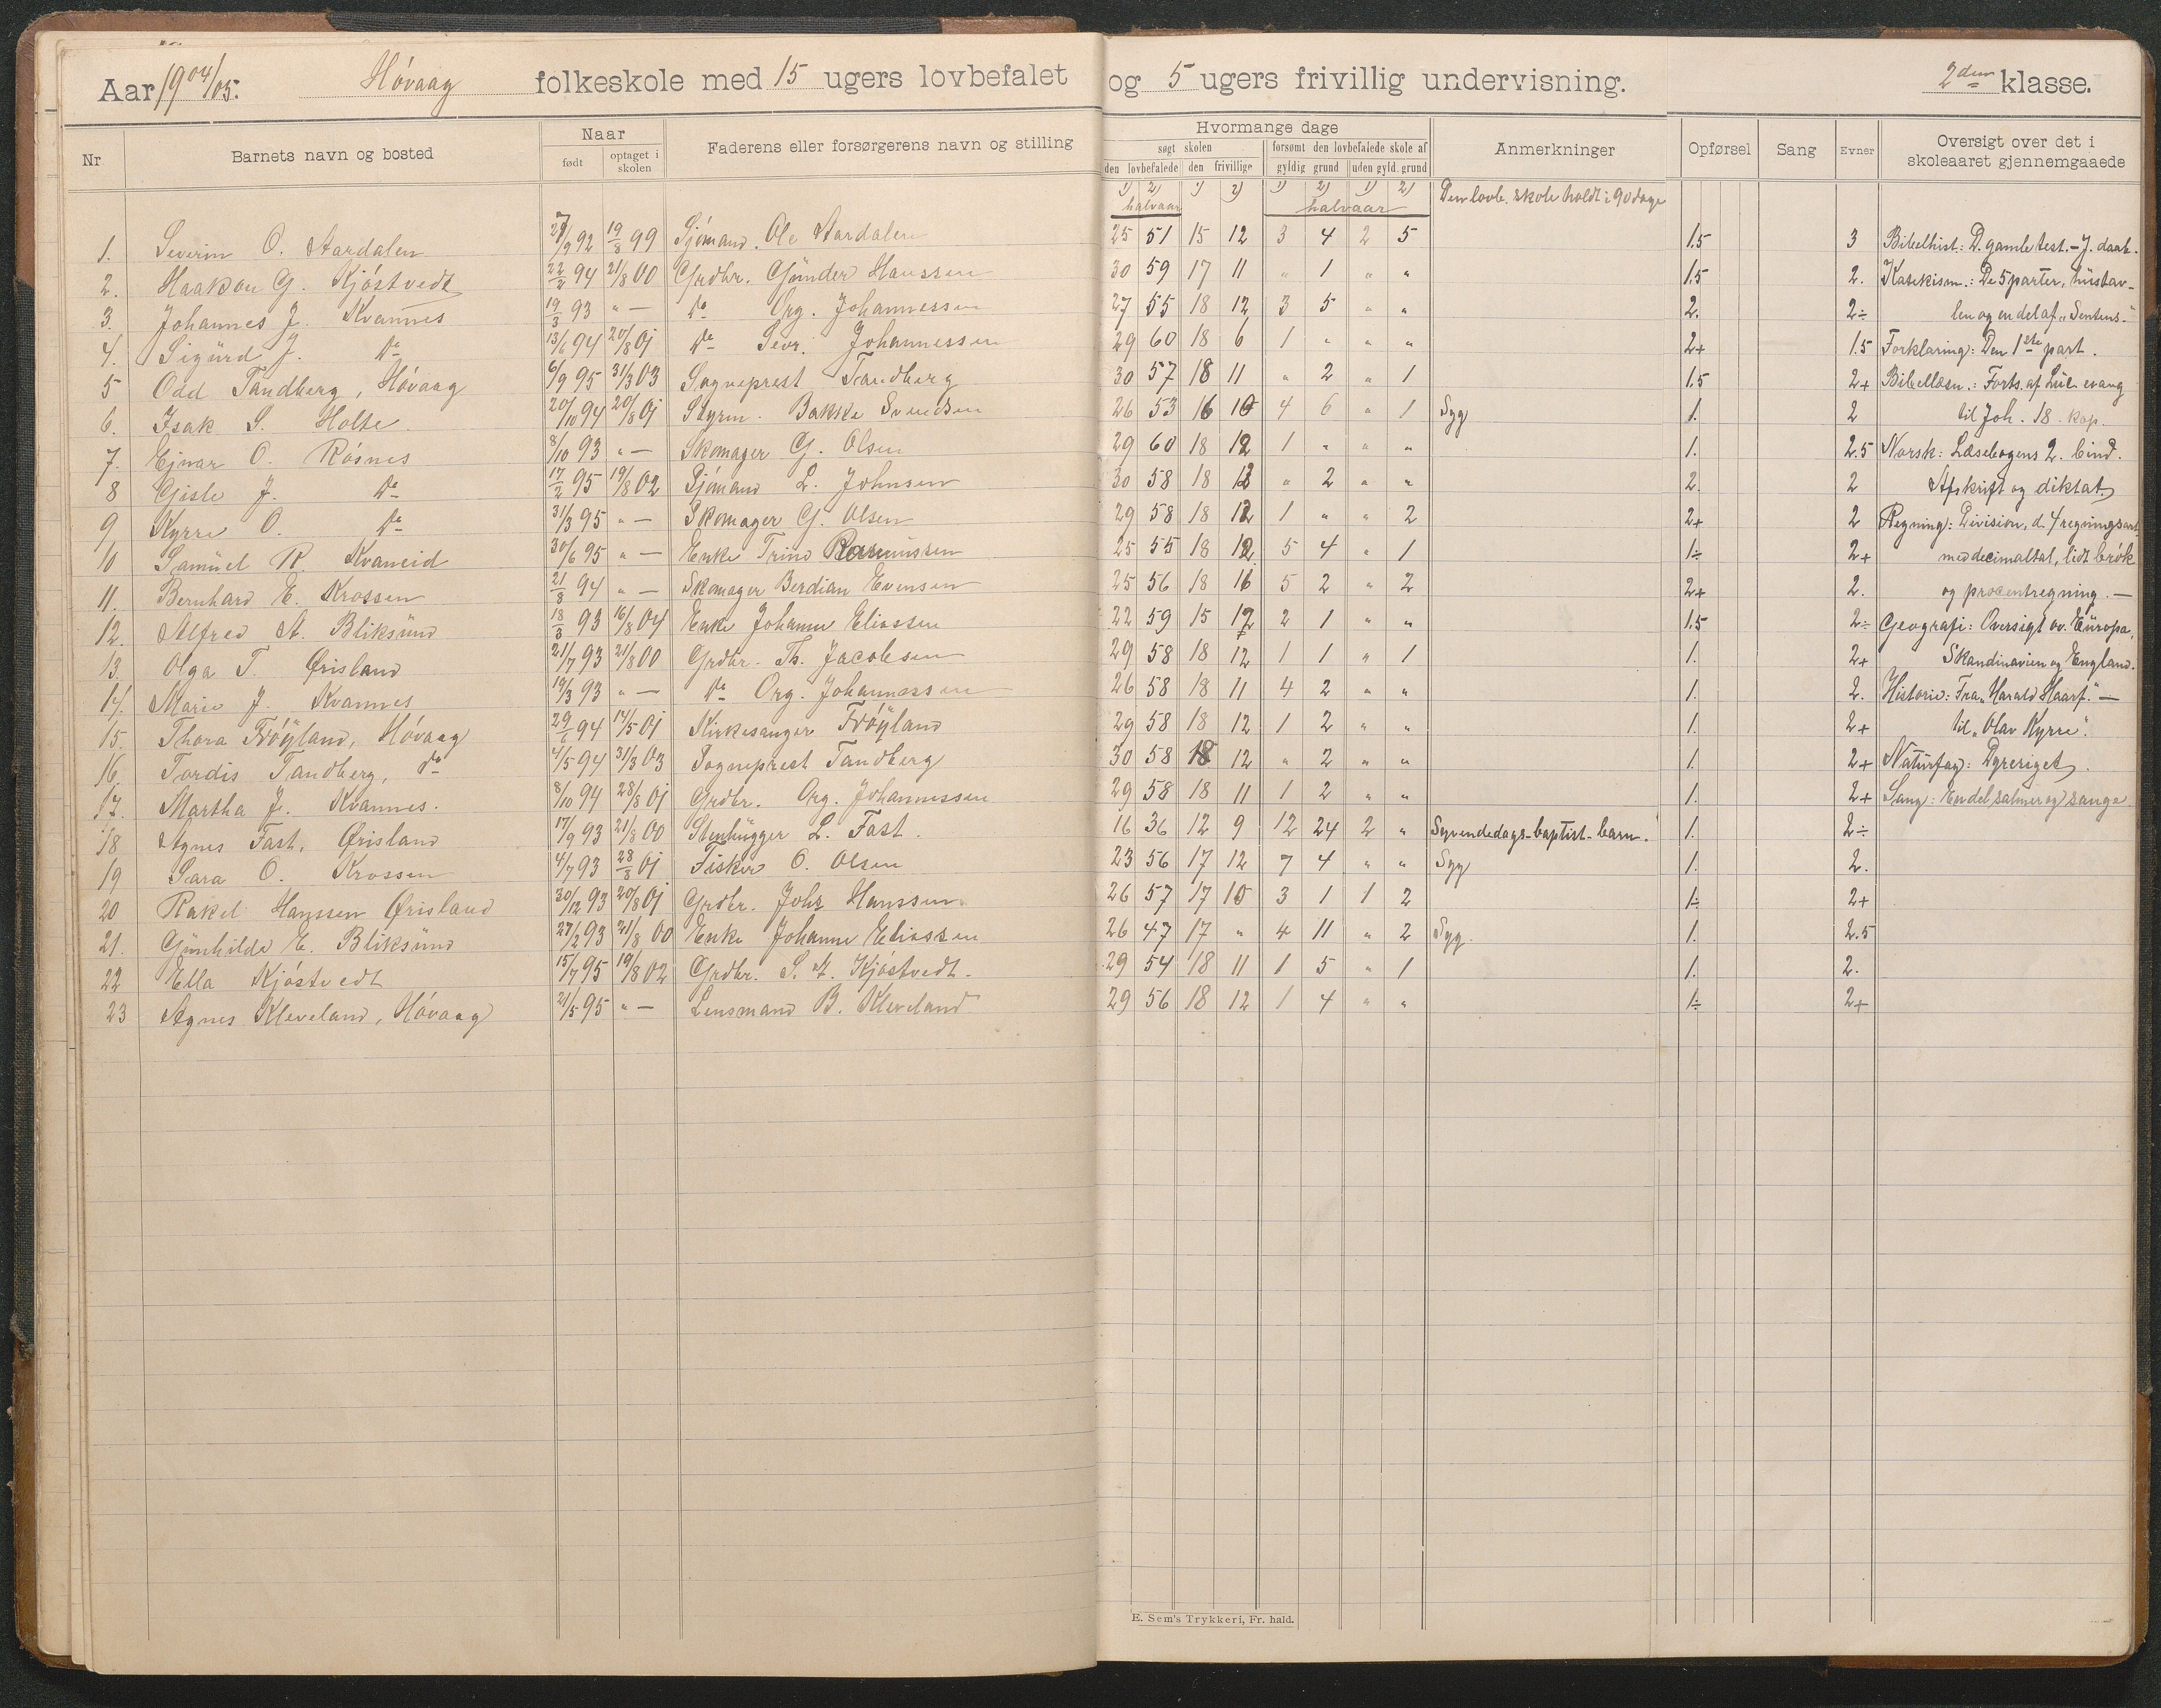 Aar 1904/05. Høvaag folkeskole med 15 ugers lovbefalet og 5 ugers frivillig undervisning. 2den klasse.
Nr Barnets navn og bosted Naar født optaget i skolen Faderens eller forsørgerens navn og stilling Hvormange dage søgt skolen den lovbefalede den frivillige forsømt den lovbefalede skole af gyldig grund uden gyld. grund Anmerkninger Opførsel Sang Evner Oversigt over det i skoleaaret gjennemgaaede
1) 2) 1) 2) 1) 2) 1) 2) Den lovb. skole holdt i 90 dage
halvaar halvaar
1. Severin O. Aardalen 27/9 92 19/8 99 Sjømand. Ole Aardalen 25 51 15 12 3 4 2 5 1.5 3 Bibelhist: D. gamle test. - J. daab.
2. Haakon G. Kjøstvedt 22/2 94 21/8 00 Grdbr. Günder Hanssen 30 59 17 11 " 1 " " 1.5 2. Katekism.: De 5 parter, hüstav-
3. Johannes J. Kvannes 19/3 93 " — do Org. Johannessen 27 55 18 12 3 5 " " 2. 2÷ len og en del af "Sentens."
4. Sigürd J. do 13/6 94 20/8 01 do Sevr. Johannessen 29 60 18 6 1 " " " 2+ 1.5 Forklaring: Den 1ste part.
5 Odd Tandberg, Høvaag 6/9 95 31/3 03 Sogneprest Tandberg 30 57 18 11 " 2 " 1 1.5 2+ Bibellæsn.: Forts. af Luk. evang
6. Isak S. Holte. 20/10 94 20/8 01 Styrm. Bakke Svendsen 26 53 16 10 4 6 " 1 Syg 1. 2 til Joh. 18. kap.
7. Ejnar O. Røsnes 8/10 93 " — Skomager G. Olsen 29 60 18 12 1 " " " 1. 2.5 Norsk: Læsebogens 2. bind.
8 Gisle J. do 17/2 95 19/8 02 Sjømand L. Johnsen 30 58 18 12 " 2 " " 2. 2 Afskrift og diktat
9 Kyrre O. do 31/3 95 " — Skomager G. Olsen 29 58 18 12 1 " " 2 2+ 2 Regning: Division, d. 4 regningsart.
10 Samüel R. Kvaneid 30/6 95 " — Enke Trine Rasmussen 25 55 18 12 5 4 " 1 1÷ 2+ med decimaltal, lidt brøk
11. Bernhard E. Krossen 21/8 94 " — Skomager Berdian Evensen 25 56 18 16 5 2 " 2 2+ 2. og procentregning. —
12. Alfred A. Bliksünd 18/3 93 16/8 04 Enke Johanne Eliassen 22 59 15 12 2 1 " " 1.5 2÷ Geografi: Oversigt ov. Eüropa,
13. Olga T. Ørisland 21/7 93 21/8 00 Grdbr. Th. Jacobsen 29 58 18 12 1 1 " 1 1. 2+ Skandinavien og England.
14. Marie J. Kvannes 19/3 93 " — do Org. Johannessen 26 58 18 11 4 2 " " 1. 2. Historie: Fra "Harald Haarf." —
15. Thora Frøÿland, Høvaag 29/6 94 14/5 01 Kirkesanger Frøÿland 29 58 18 12 1 2 " " 1. 2+ til "Olav Kyrre".
16. Tordis Tandberg, do 4/5 94 31/3 03 Sogneprest Tandberg 30 58 18 12 " 2 " " 1. 2+ Natürfag: Dyreriget.
17. Martha J. Kvannes. 8/10 94 28/8 01 Grdbr. Org. Johannessen 29 58 18 11 1 2 " " 1. 2+ Sang: En del salmer og sange.
18 Agnes Fast, Ørisland 17/9 93 21/8 00 Stenhügger L. Fast. 16 36 12 9 12 24 2 " Syvendedags-baptist-barn. 1. 2÷
19 Sara O. Krossen 4/7 93 28/8 01 Fisker O. Olsen 23 56 17 12 7 4 " " Syg 1. 2.
20 Rakel Hanssen Ørisland 30/12 93 20/8 01 Grdbr. Johs Hanssen. 26 57 17 10 3 1 1 2 1÷ 2+
21. Günhilde E. Bliksünd 27/2 93 21/8 00 Enke Johanne Eliassen 26 47 17 " 4 11 " 2 Syg. 1. 2.5
22 Ella Kjøstvedt 15/7 95 19/8 02 Grdbr. S. A. Kjøstvedt. 29 54 18 11 1 5 " 1 1. 2.
23 Agnes Kleveland, Høvaag 21/5 95 " — Lensmand B. Kleveland 29 56 18 12 1 4 " " 1÷ 2+
E. Sem's Trykkeri, Fr. hald.